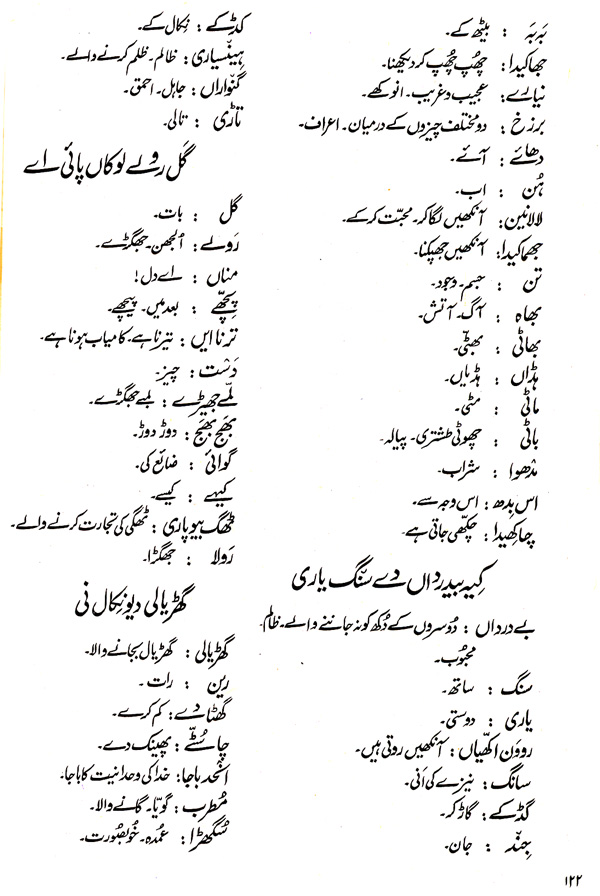 بَہ بَہ : بیٹھ کے۔
جھاکیدا: چھُپ چھُپ کر دیکھنا۔
نیارے: عجیب و غریب۔ انوکھے۔
برزخ : دو مختلف چیزوں کے درمیان۔ اعراف۔
دھائے : آئے۔
ہُن : اب۔
لالانین: آنکھیں لگا کر۔ محبّت کر کے۔
جھما کیدا: آنکھیں جھپکنا۔
تن : جسم۔ وجود۔
بھاہ : آگ۔ آتش۔
بھاٹی : بھٹی۔
ہڈاں : ہڈیاں۔
ماٹی : مٹی۔
باٹی : چھوٹی طشتری۔ پیالہ۔
مدھوا : شراب۔
اس بدھ: اس وجہ سے۔
چاکھیدا: چکھی جاتی ہے۔
کیہ بیدرداں دے سنگ یاری
بے درداں : دُوسروں کے دُکھ کو نہ جاننے والے۔ ظالم۔
محبُوب۔
سنگ : ساتھ۔
یاری : دوستی۔
روون اکھّیاں: آنکھیں روتی ہیں۔
سانگ : نیزے کی اَنی۔
گڈ کے: گاڑ کر۔
جِند : جان۔
کڈ کے : نکال کے۔
ہینسیاری: ظالم۔ ظلم کرنے والے۔
گنواراں: جاہل۔ احمق۔
تاڑی : تالی۔
گل رولے لوکاں پائی اے
گل : بات۔
رَولے : اُلجھن۔ جھگڑے۔
مناں : اے دل!
پچھّے : بعد میں۔ پیچھے۔
ترنا ایں: تیرنا ہے۔ کامیاب ہونا ہے۔
دَست : چیز۔
لمّے جھیڑے: لمبے جھگڑے۔
بھج بھج: دوڑ دوڑ۔
گوائی : ضائع کی۔
کیہے : کیسے۔
ٹھگ بیوپاری: ٹھگی کی تجارت کرنے والے۔
رَولا : جھگڑا۔
گھڑیالی دیو نِکال نی
گھڑیالی: گھڑیال بجانے والا۔
رین : رات۔
گھٹا دے: کم کرے۔
چا سُٹّے: پھینک دے۔
انحد باجا: خدا کی وحدانیت کا باجا۔
مُطرب: گویّا۔ گانے والا۔
سُگھڑا : عمدہ۔ خُوبصُورت۔
۱۲۲